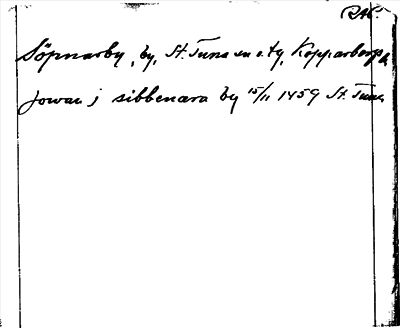 RAP.
Söpnarby, by, St. Tuna sn o. tg, Kopparbergs l.
Jowan j sibbenara by 15/11 1459 St. Tuna